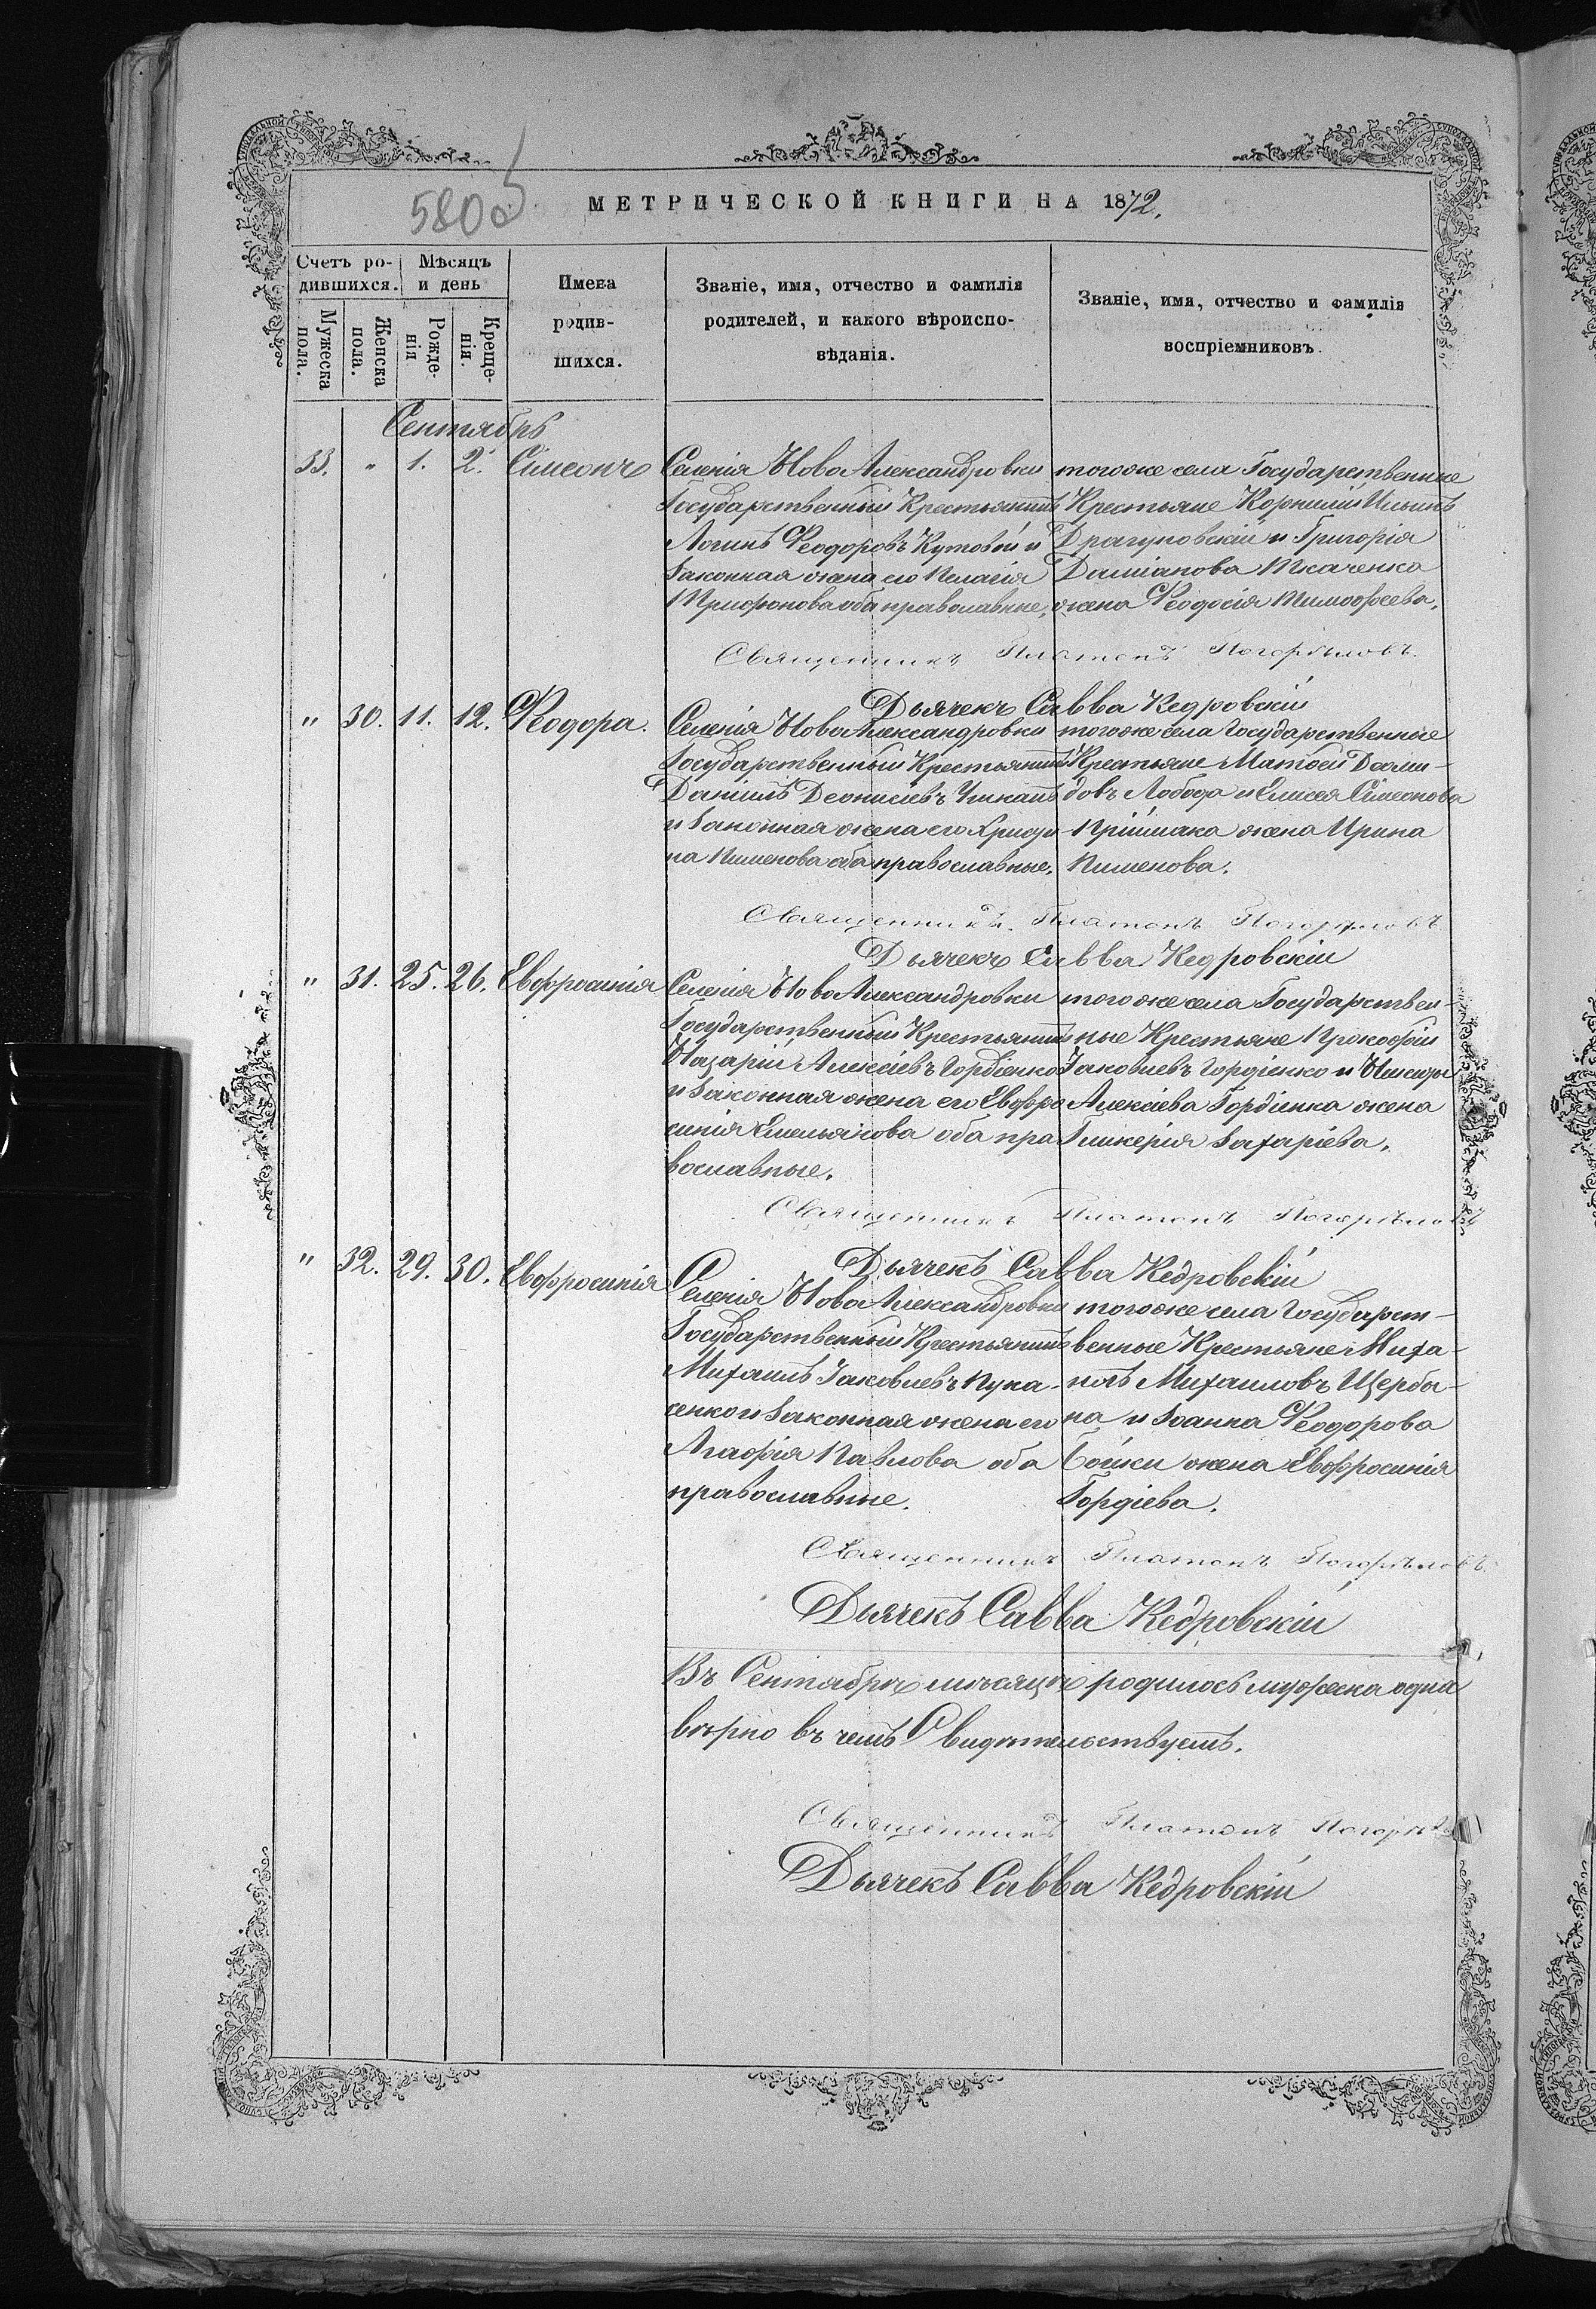 580 об
МЕТРИЧЕСКОЙ КНИГИ НА 1872.
Счетъ ро-
дившихся.
Мѣсяцъ
и день
Мужеска
пола.
Женска
пола.
Рожде-
нія
Креще-
нія.
Имена
родив-
шихся.
Званіе, имя, отчество и фамилія
родителей, и какого вѣроиспо-
вѣданія.
Званіе, имя, отчество и фамилія
воспріемниковъ.
Сентябрь
33. " 1. 2. Сімеонъ
Селенія НовоАлександровки
Государственный Крестьянинъ
Логинъ Ѳеодоровъ Кутовый и
Законная жена его Пелагія
Трифонова оба православные,
тогоже села Государственные
Крестьяне Корнилій Ильинъ
Драгуновскій и Григорія
Даміанова Ткаченка
жена Ѳеодосія Тимоѳеева.
Священникъ Платонъ Погорѣловъ.
Дьячекъ Савва Кедровскій
" 30. 11. 12. Ѳеодора.
Селенія НовоАлександровки
Государственный Крестьянинъ
Даніилъ Деонисіевъ
и Законная жена его
на Пименова оба православные.
тогоже села Государственные
Крестьяне Матѳей
довъ Лобода и Елисея Сімеонова
Пріймака жена Ирина
Пименова.
Священникъ Платонъ Погорѣловъ
Дьячекъ Савва Кедровскій
" 31. 25. 26. Евфросинія
Селенія НовоАлександровки
Государственный Крестьянинъ
Назарій Алексіевъ Гордіенко
и Законная жена его Евфро
синія Емельянова оба пра
вославные.
тогоже села Государствен-
ные Крестьяне Прокофій
Іаковлевъ Гордіенко и
Алексіева Гордіенка жена
Гликерія Захаріева.
Священникъ Платонъ Погорѣловъ
Дьячекъ Савва Кедровскій
" 32. 29. 30. Евфросинія
Селенія НовоАлександровки
Государственный Крестьянинъ
Михаилъ Іаковлевъ Лука-
сенко и Законная жена его
Агафія Павлова оба
православные.
тогоже села Государст-
венные Крестьяне Миха-
илъ Михаиловъ Щерба-
на и Іоанна Ѳеодорова
Бойки жена Евфросинія
Гордіева.
Священникъ Платонъ Погорѣловъ.
Дьячекъ Савва Кедровскій
Въ Сентябрѣ мѣсяцѣ родилось мужеска одна
вѣрно въ чемъ Свидѣтельствуемъ.
Священникъ Платонъ
Дьячекъ Савва Кедровскій